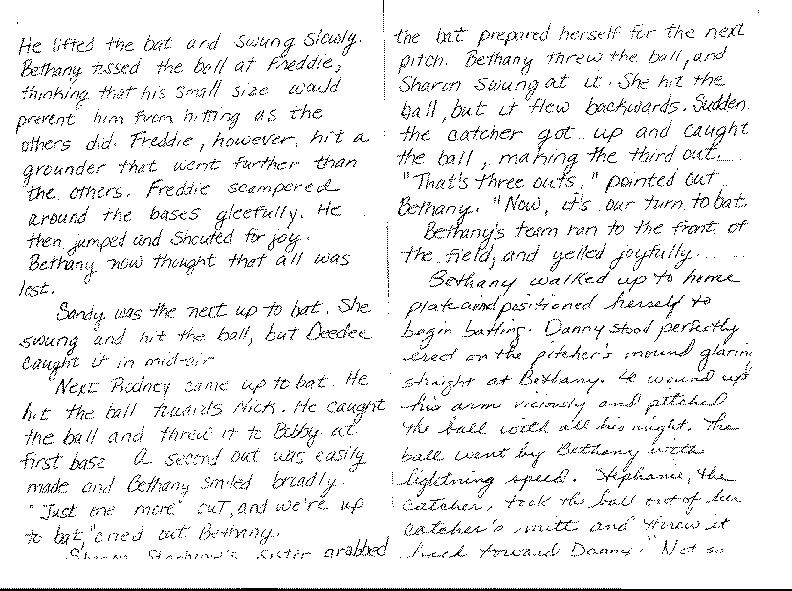 He lifted the bat and swung slowly.
Bethany tossed the ball at Freddie,
thinking that his small size would
prevent him from hitting as the
others did. Freddie, however, hit a
grounder that went further than
the others. Freddie scampered
around the bases gleefully. He
then jumped and shouted for joy.
Bethany now thought that all was
lost.
Sandy was the next up to bat. She
swung and hit the ball, but Deedee
caught it in mid-air
Next Rodney came up to bat. He
hit the ball towards Nick. He caught
the ball and threw it to Bobby at
first base. A second out was easily
made and Bethany smiled broadly.
"Just one more out, and we're up
to bat," cried out Bethany.
sister grabbed
the bat prepared herself for the next
pitch. Bethany threw the ball, and
Sharon swung at it. She hit the
ball, but it flew backwards. Sudden
the catcher got up and caught
the ball, making the third out.
"That's three outs," pointed out
Bethany. "Now, it's our turn to bat.
Bethany's team ran to the front of
the field, and yelled joyfully.
Bethany walked up to home
plate and positioned herself to
begin batting. Danny stood perfectly
erect on the pitcher's mound glaring
straight at Bethany. He wound up
his arm viciously and pitched
the ball with all his might. The
ball went by Bethany with
lightning speed. Stephanie, the
catcher, took the ball out of her
catcher's mitt and threw it
back toward Danny. "Not so